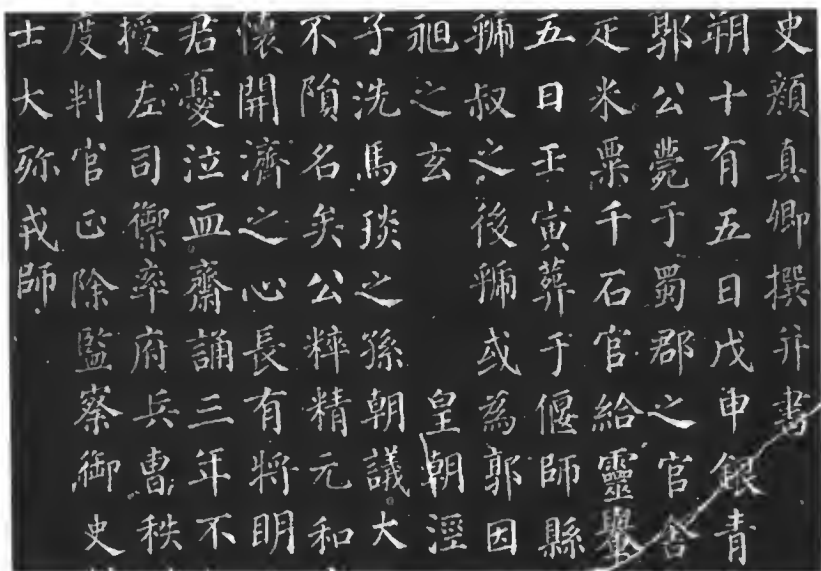 史顏真卿撰并書
朔十有五日戊申銀青
郭公薨于蜀郡之官舍
疋米粟千石官給靈轝
五日壬寅葬于偃師縣
虢叔之後虢或為郭因
昶之玄 皇朝涇
子洗馬琰之孫朝議大
不隕名矣公粹精元和
懷開濟之心長有將明
君憂泣血齋誦三年不
授左司禦率府兵曹秩
度判官正除監察御史
士大殄戎師